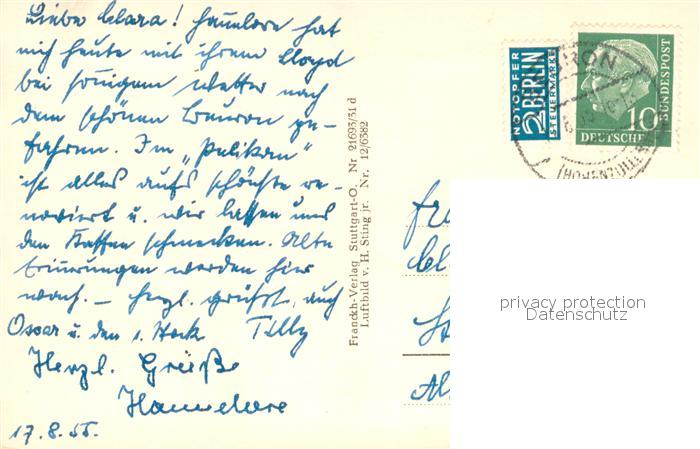 Liebe Clara! Hannelore hat
mich heute mit ihrem Lloyd
bei sonnigem Wetter nach
dem schönen Beuron ge-
fahren. Im „Pelikan"
ist alles aufs schönste re-
noviert u. wir lassen uns
den Kaffee schmecken. Alte
Erinnerungen werden hier
wach. – Herzl. grüßt, auch
Oscar u. den 1. Stock Tilly
Herzl. Grüße
Hannelore
17.8.55.
Franckh-Verlag Stuttgart-O. Nr 21695/51 d
Luftbild v. H. Sting jr. Nr. 12/6382
NOTOPFER
2 BERLIN
STEUERMARKE
10
DEUTSCHE
BUNDESPOST
RON
(HOHENZOLLE
Fr
Al
privacy protection
Datenschutz